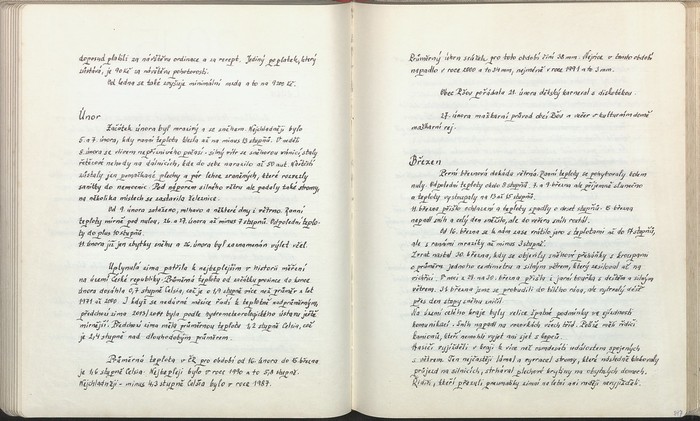 doposud platili za návštěvu ordinace a za recept. Jediný poplatek, který
zůstává, je 90 Kč za návštěvu pohotovosti.
Od ledna se také zvyšuje minimální mzda a to na 9200 Kč.
Únor
Začátek února byl mrazivý a se sněhem. Nejchladněji bylo
6. a 7. února, kdy ranní teplota klesla až na minus 13 stupňů. V neděli
8. února se vlivem nepříznivého počasí - silný vítr se sněhovou vánicí staly
řetězové nehody na dálnicích, kde do sebe narazilo až 50 aut. Největší
zůstaly jen pomačkané plechy a pár lehce zraněných, které rozvezly
sanitky do nemocnic. Pod náporem silného větru ale padaly také stromy,
na několika místech se zastavila železnice.
Od 9. února zataženo, mlhavo a některé dny i větrno. Ranní
teploty mírně pod nulou, 16. a 17. února až minus 7 stupňů. Odpolední teplo-
ty do plus 10 stupňů.
11. února již jen zbytky sněhu a 26. února byl zaznamenán výlet včel.
Uplynulá zima patřila k nejteplejším v historii měření
na území České republiky. Průměrná teplota od začátku prosince do konce
února dosáhla 0,7 stupně Celsia, což je o 1,9 stupně více než průměr z let
1971 až 2000. I když se nedávné měsíce řadí k teplotně nadprůměrným,
předchozí zima 2013/2014 byla podle hydrometeorologického ústavu ještě
mírnější. Předchozí zima měla průměrnou teplotu 1,2 stupně Celsia, což
je 2,4 stupně nad dlouhodobým průměrem.
Průměrná teplota v ČR pro období od 16. února do 6. března
je 1,6 stupně Celsia. Nejtepleji bylo v roce 1990 a to 5,8 stupně.
Nejchladněji - minus 4,3 stupně Celsia bylo v roce 1987.
Průměrný úhrn srážek pro toto období činí 28 mm. Nejvíce v tomto období
napadlo v roce 2000 a to 54 mm, nejméně v roce 1991 a to 3 mm.
Obec Řížov pořádala 21. února dětský karneval s diskotékou.
27. února maškarní průvod obcí a večer v kulturním domě
maškarní rej.
Březen
První březnová dekáda větrná. Ranní teploty se pohybovaly kolem
nuly. Odpolední teploty okolo 8 stupňů. 7. a 9. března ale příjemně slunečno
a teploty vystoupaly na 13 až 15 stupňů.
11. března přišlo ochlazení a teploty spadly o deset stupňů. března
napadl sníh a celý den sněžilo, ale do večera sníh roztál.
Od 16. března se k nám zase vrátilo jaro s teplotami až do 17 stupňů,
ale s ranními mrazíky až minus 3 stupně.
Zvrat nastal 30. března, kdy se objevily sněhové přeháňky s kroupami
o průměru jednoho centimetru a silným větrem, který zesiloval až na
vichřici. V noci z 29. na 30. března přišla i jarní bouřka s deštěm a silným
větrem. 31. března jsme se probudili do bílého rána, ale vytrvalý déšť
přes den stopy sněhu smyl.
Na území celého kraje byly velice špatné podmínky ve sjízdnosti
komunikací. Sníh napadl na rozmáčených všech tříd. Potíže měli řidiči
kamionů, kteří nemohli vyjet ani sjet z kopců.
Hasiči vyjížděli v kraji k více než událostem spojených
s větrem. Ten nejčastěji lámal a vyvracel stromy, které následně blokovaly
průjezd na silnicích, strhával plechové krytiny na obytných domech.
Řidiči, kteří přezuli pneumatiky zimní na letní ani raději nevyjížděli.